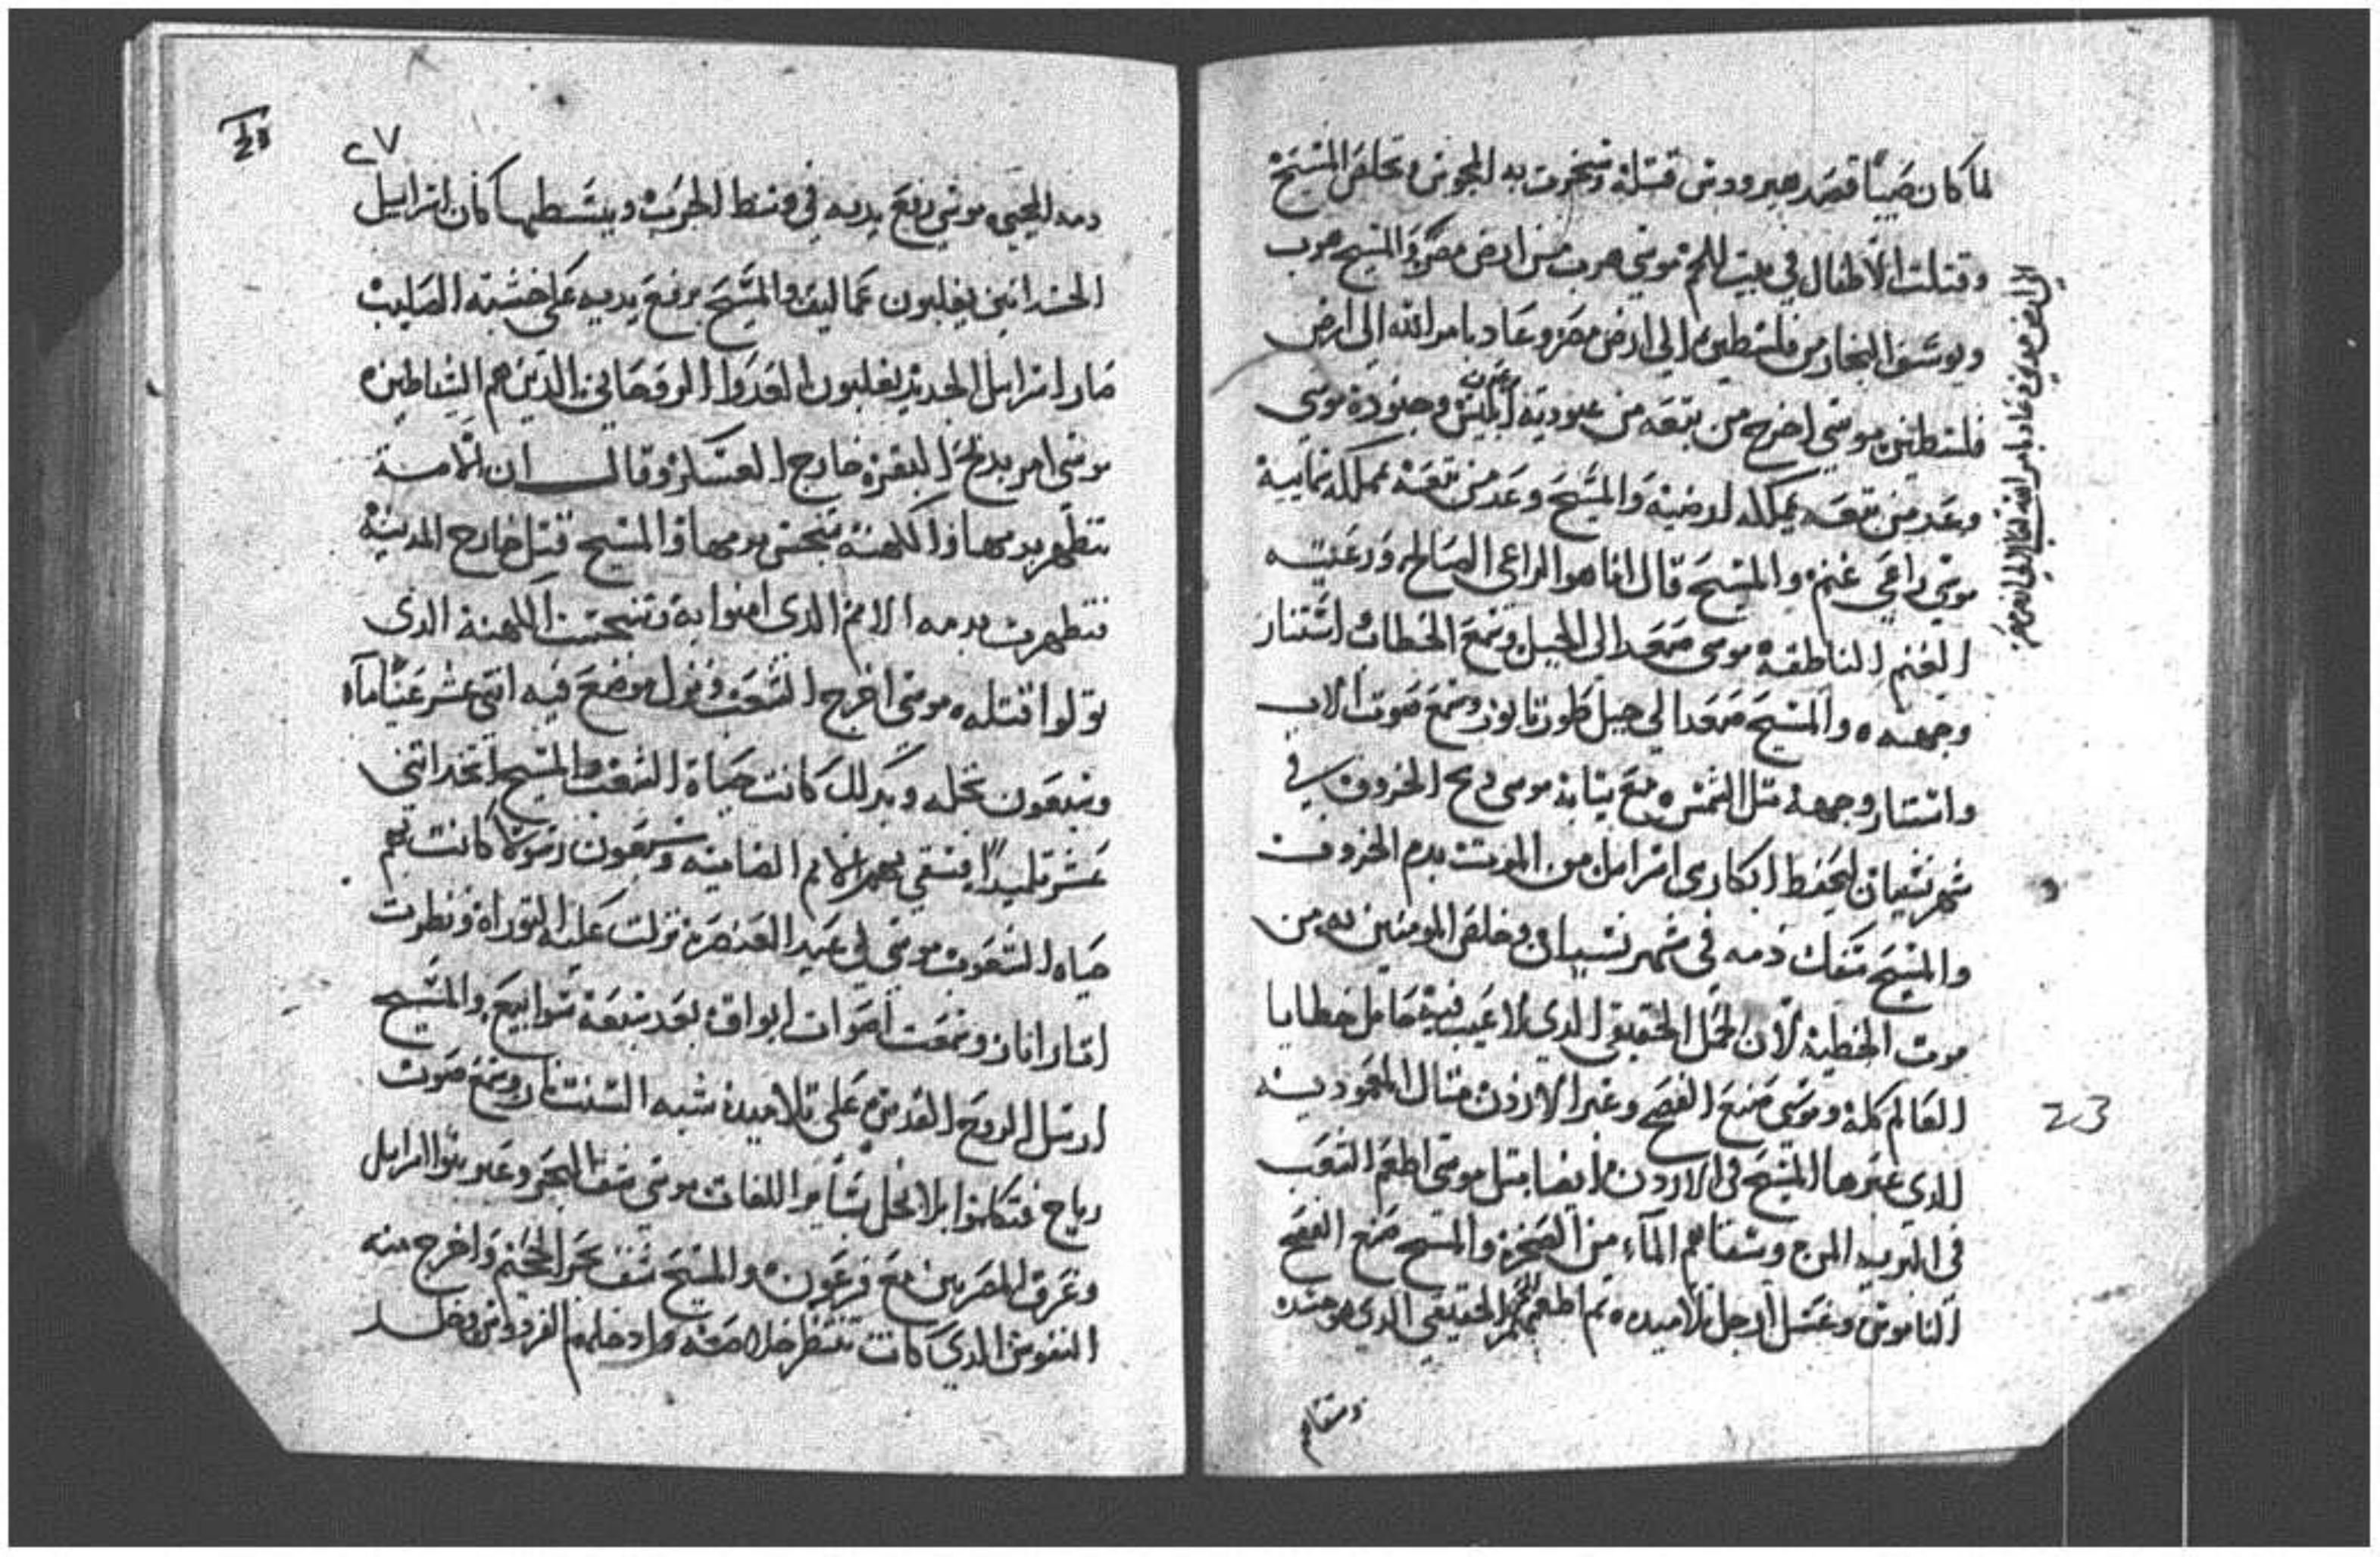 لما كان صبيًا قصد هيرودس قتله وسخرت به المجوس وتخلص المسيح
وقتلت الاطفال في بيت اللحم موسي هرب من ارض مصر والمسيح هرب
ويوسف النجار من فلسطين الي ارض مصر وعاد بامر الله الي ارض
فلسطين موسي اخرج من تبعه من عبودية ابليس وجنوده موسي
وعد من تبعه بمملكه ارضيه والمسيح وعد من تبعه بمملكه سمايية
موسي راعي غنم والمسيح قال انا هو الراعي الصالح ورعيته
الغنم الناطقة موسي صعد الي الجبل وسمع الخطاب استنار
وجهه والمسيح صعد الي جبل طور تابور وسمع صوت الاب
واستنار وجهه متل الشمس مع تيابه موسي دبح الخروف في
شهر نيسان ليحفظ ابكار اسراييل من الموت بدم الخروف
والمسيح سفك دمه في شهر نيسان وخلص المومنين به من
موت الخطية لان الحمل الحقيقي الدي لا عيب فيه حامل خطايا
العالم كله وموسي صنع الفصح وعبر الاردن متال المعمودية
الدي عبرها المسيح في الاردن ايضا متل موسي اطعم الشعب
في البرية المن وسقاهم الماء من الصخرة والمسيح صنع الفصح
الناموسي وغسل ارجل تلاميده تم اطعمهم الحقيقي الدي هو جسده
وسقاهم
الي ارض مصر وعاد بامر الله تعالي الي ارض مصر
23
٢٧
دمه المحيي موسي رفع يديه في وسط الحرب وبسطها كان اسراييل
الجسدانيين يغلبون عماليق والمسيح برفع يديه علي خشبة الصليب
صار اسراييل الجديد يغلبون العدوا الروحاني الدين هم الشياطين
موسي امر بدبح البقرة خارج العسكر وقال ان الامة
تتطهر بدمها والكهنة تنجس بدمها والمسيح قتل خارج المدينة
فتطهرت بدمه الامم الدي امنوا به وتنجست الكهنة الدي
تولوا قتله موسي اخرج الشعب ونزل موضع فيه اتني عشر عينًا ماء
وسبعون نخله وبدلك كانت حياة الشعب والمسيح اتخد اتني
عشر تلميدًا فسقي بهم الامم الضامية وسبعون رسولا كانت بهم
حياه الشعوب موسي في عيد العنصرة نزلت عليه التوراة ونظرت
انار نار وسمعت اصوات ابواق بعد سبعة سوابيع والمسيح
ارسل الروح القدس علي تلاميده شبه السنة نار وسمع صوت
رياح فتكلموا بالانجيل بساير اللغات موسي شق البحر وعبر بنوا اسراييل
وغرق المصريين مع فرعون والمسيح شق بحر الجحيم واخرج منه
النفوس الدي كانت تنتظر خلاصه وادخلهم الفردوس وخلد